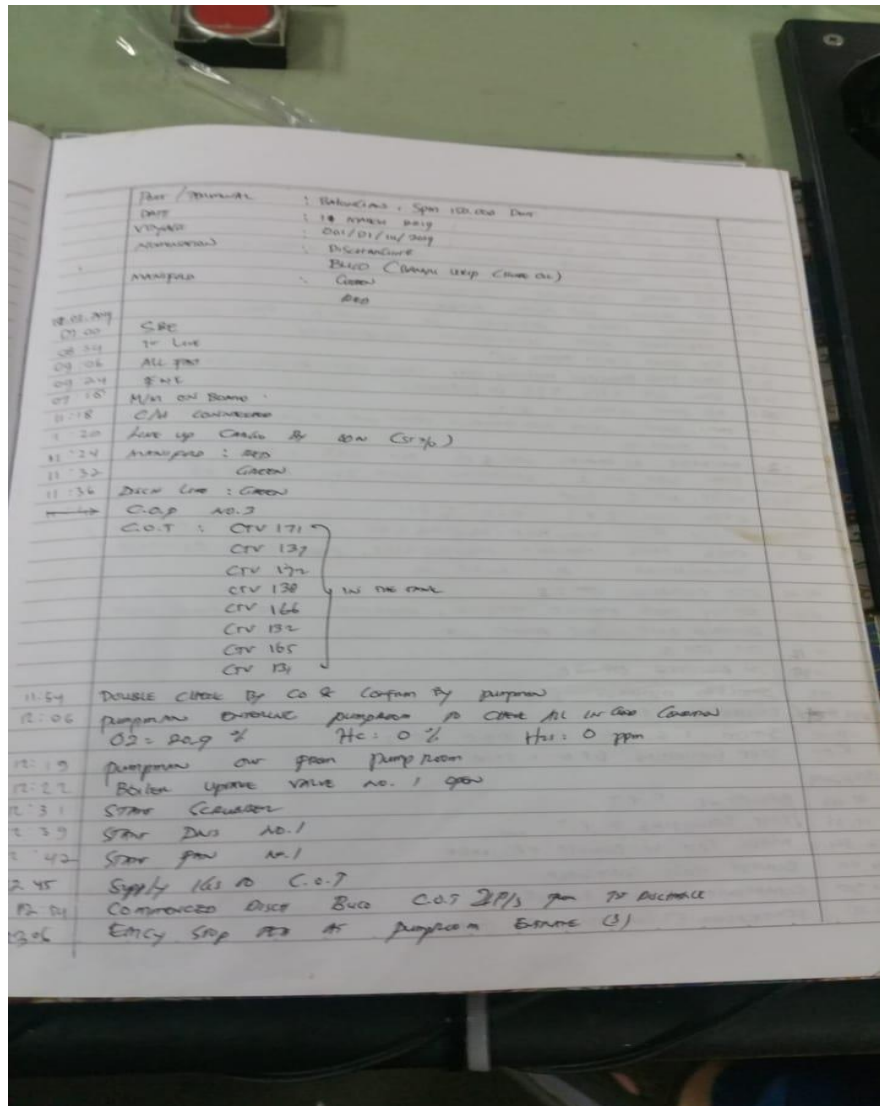 PORT / TERMINAL : BALONGAN, SPM 150.000 DWT
DATE : MARCH 2019
VOYAGE : 001/D1/III/2019
: DISCHARGING
BUCO (BANYU URIP CRUDE OIL)
MANIFOLD : GREEN
RED
.03.2019
SBE
1st LINE
09:06 ALL FAST
09:24 FWE
M/M ON BOARD
11:18 C/M CONNECTED
LINE UP CARGO BY
11:24 MANIFOLD : RED
11:32 GREEN
11:36 DISCH LINE : GREEN
C.O.P NO.3
C.O.T : CTV 171
CTV 137
CTV 172
CTV 138 IN THE TANK
CTV 166
CTV 132
CTV 165
CTV 131
11:54 DOUBLE CHECK BY CO & CONFIRM BY PUMPMAN
12:06 PUMPMAN PUMPROOM TO CHECK ALL IN GOOD CONDITION
O2 = 20.9 % HC : 0 % H2S : 0 ppm
12:19 PUMPMAN OUT FROM PUMP ROOM
12:22 BOILER UPTAKE VALVE NO. 1 OPEN
2:31 START SCRUBBER
2:39 START NO.1
:42 START FAN NO.1
2.45 SUPPLY IGS TO C.O.T
12.54 COMMENCED DISCH BUCO C.O.T 2P/S DISCHARGE
306 EMCY STOP AT PUMPROOM ENTRANCE (3)